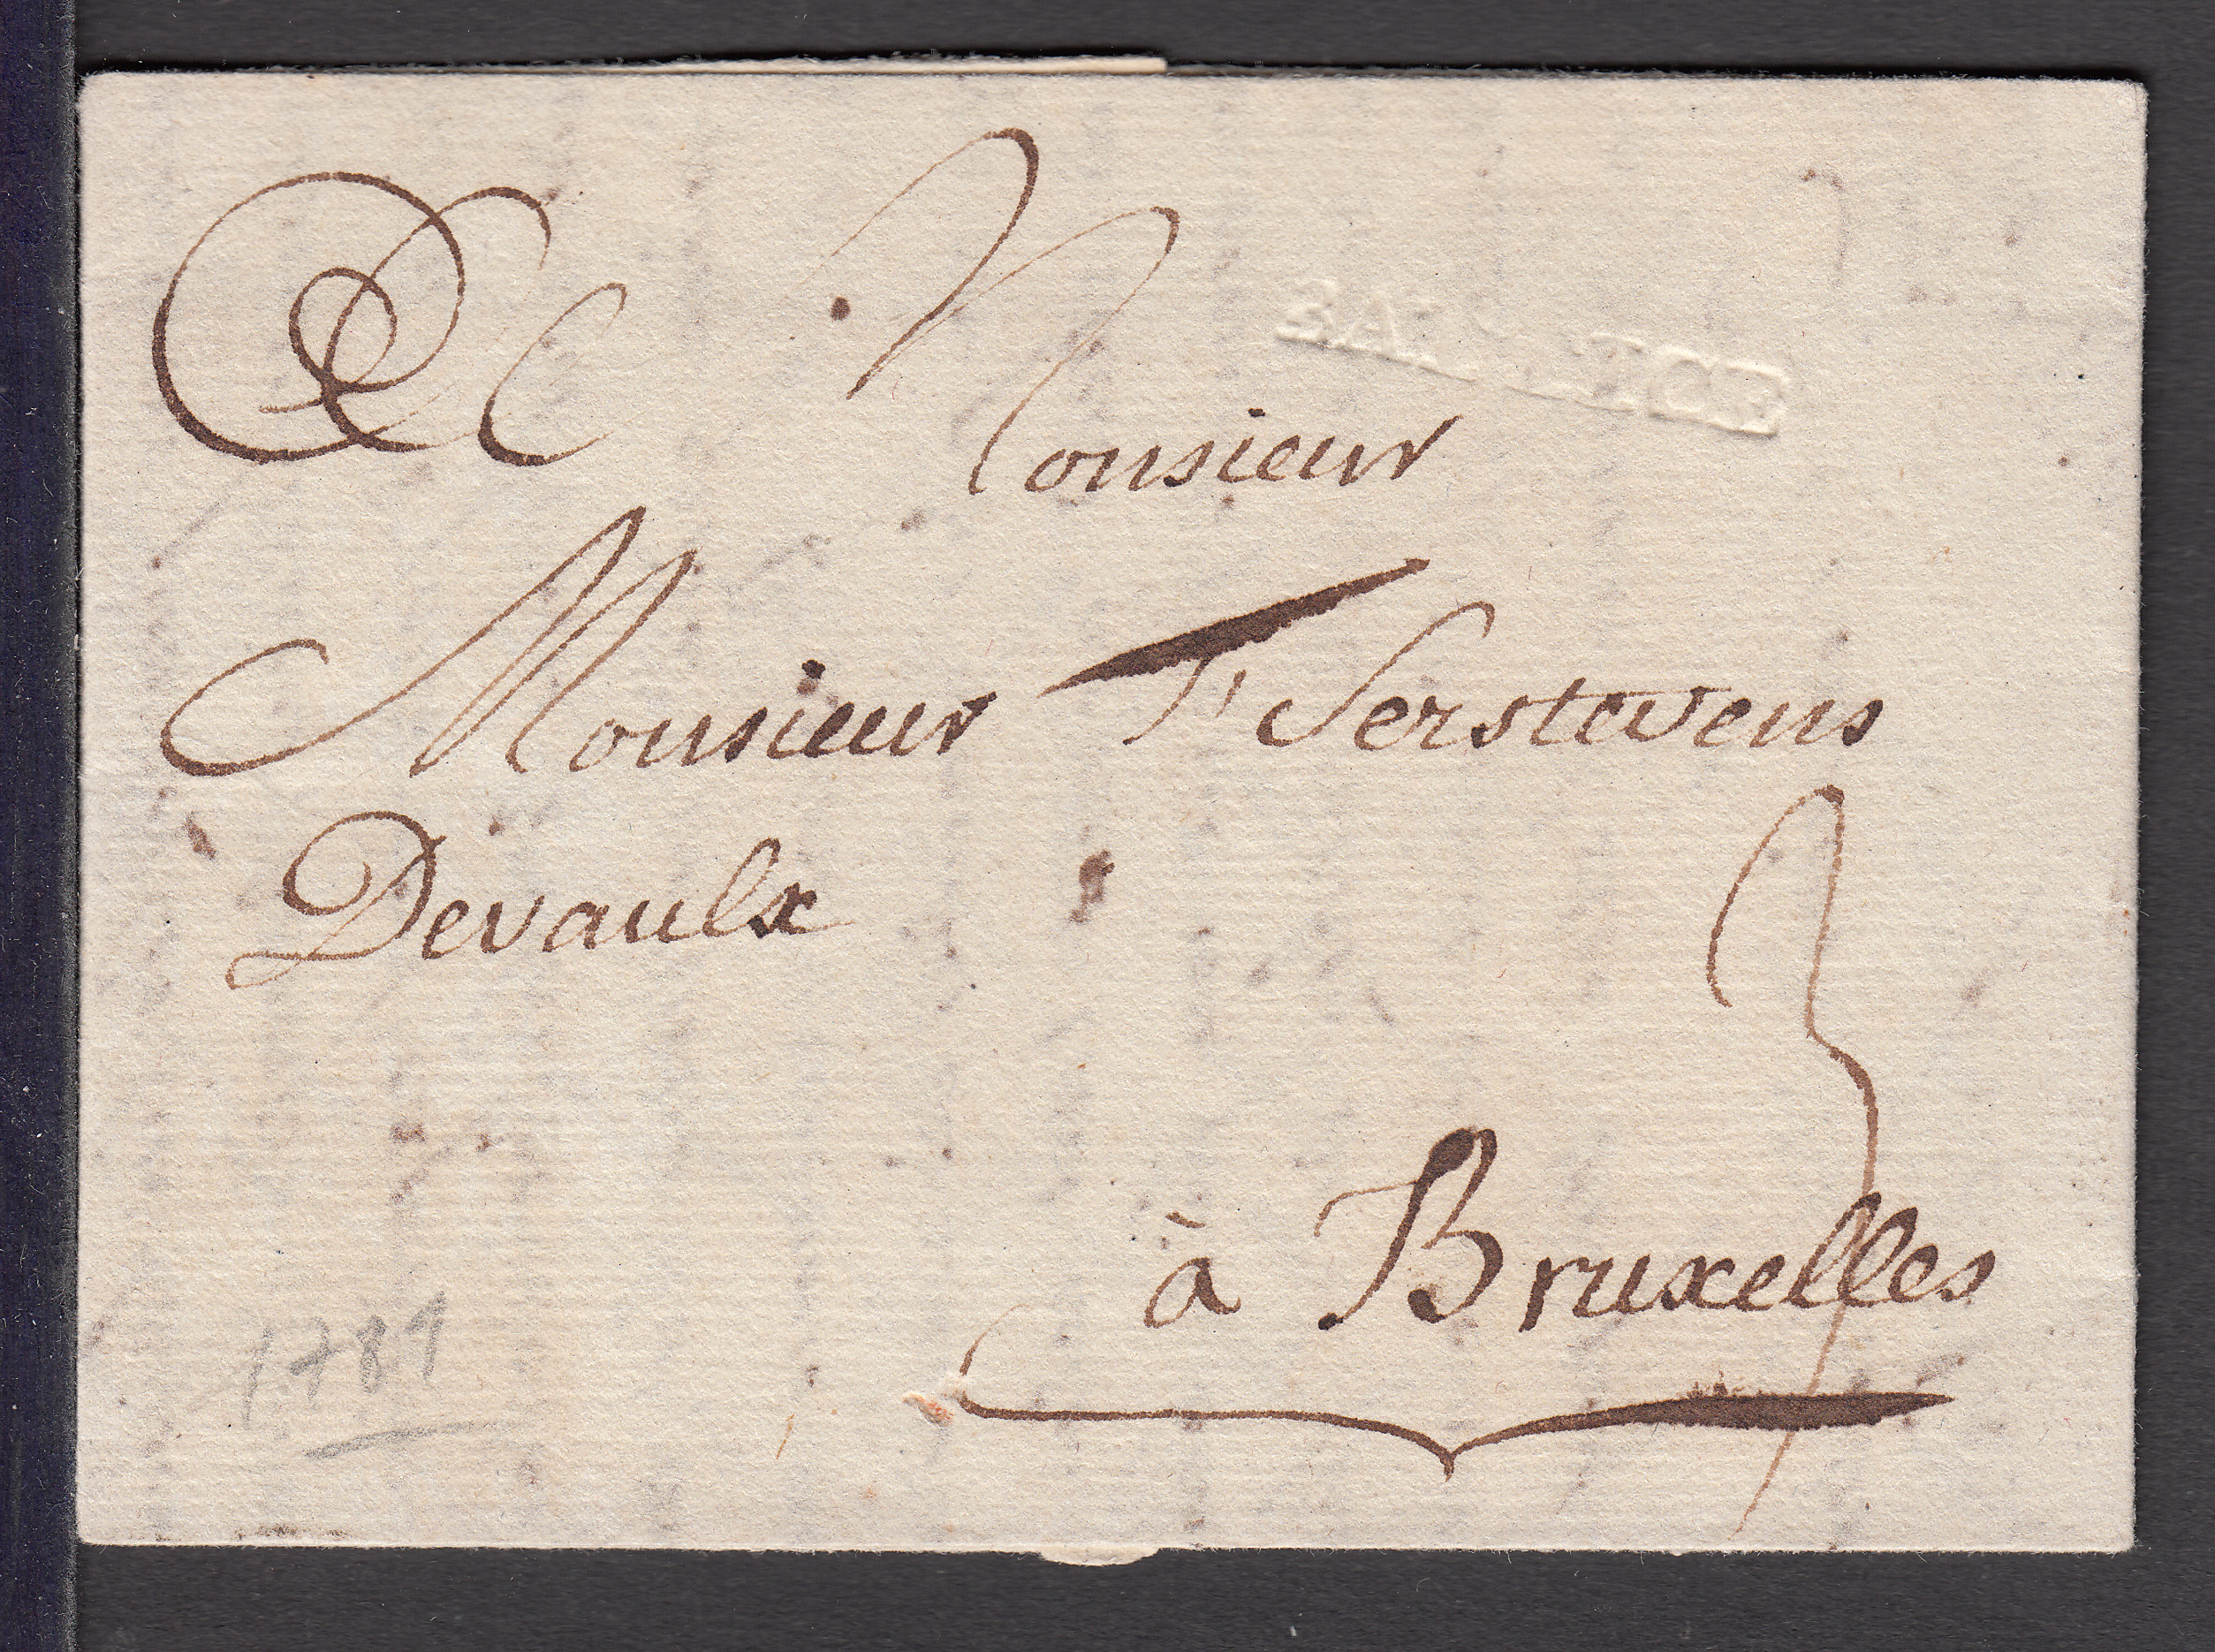 A Monsieur
Monsieur T'Serstevens
Devaulx
3
à Bruxelles
1789